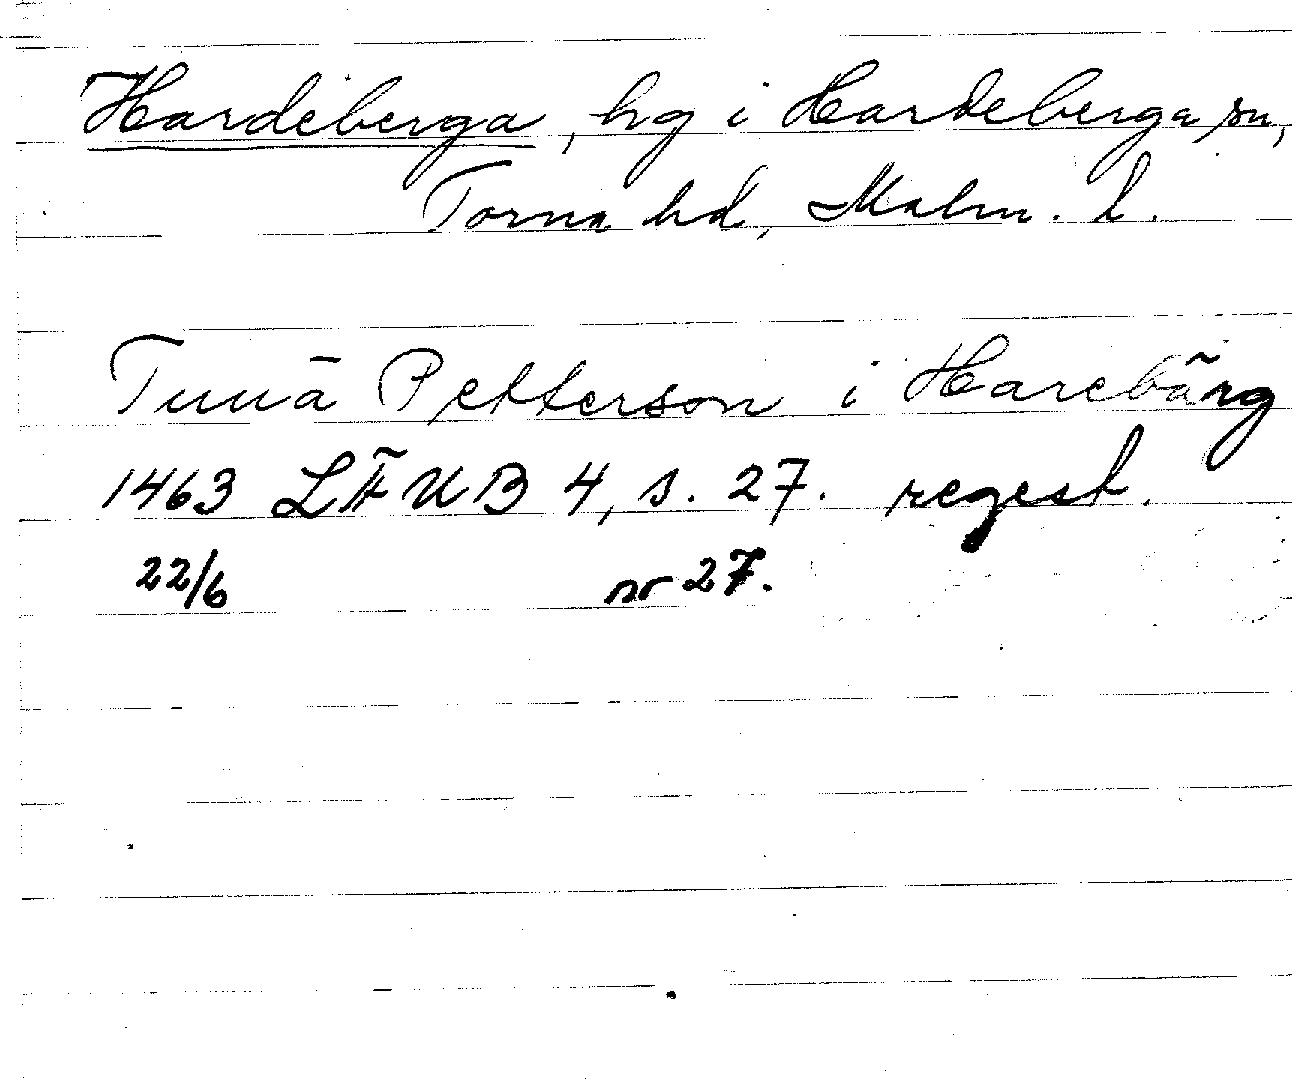 Hardeberga, hg i Hardeberga sn,
Torna hd, Malm. l.
Tuuä Petterson i Harebärg
1463 LÄUB 4, s. 27. regest.
22/6 nr 27.